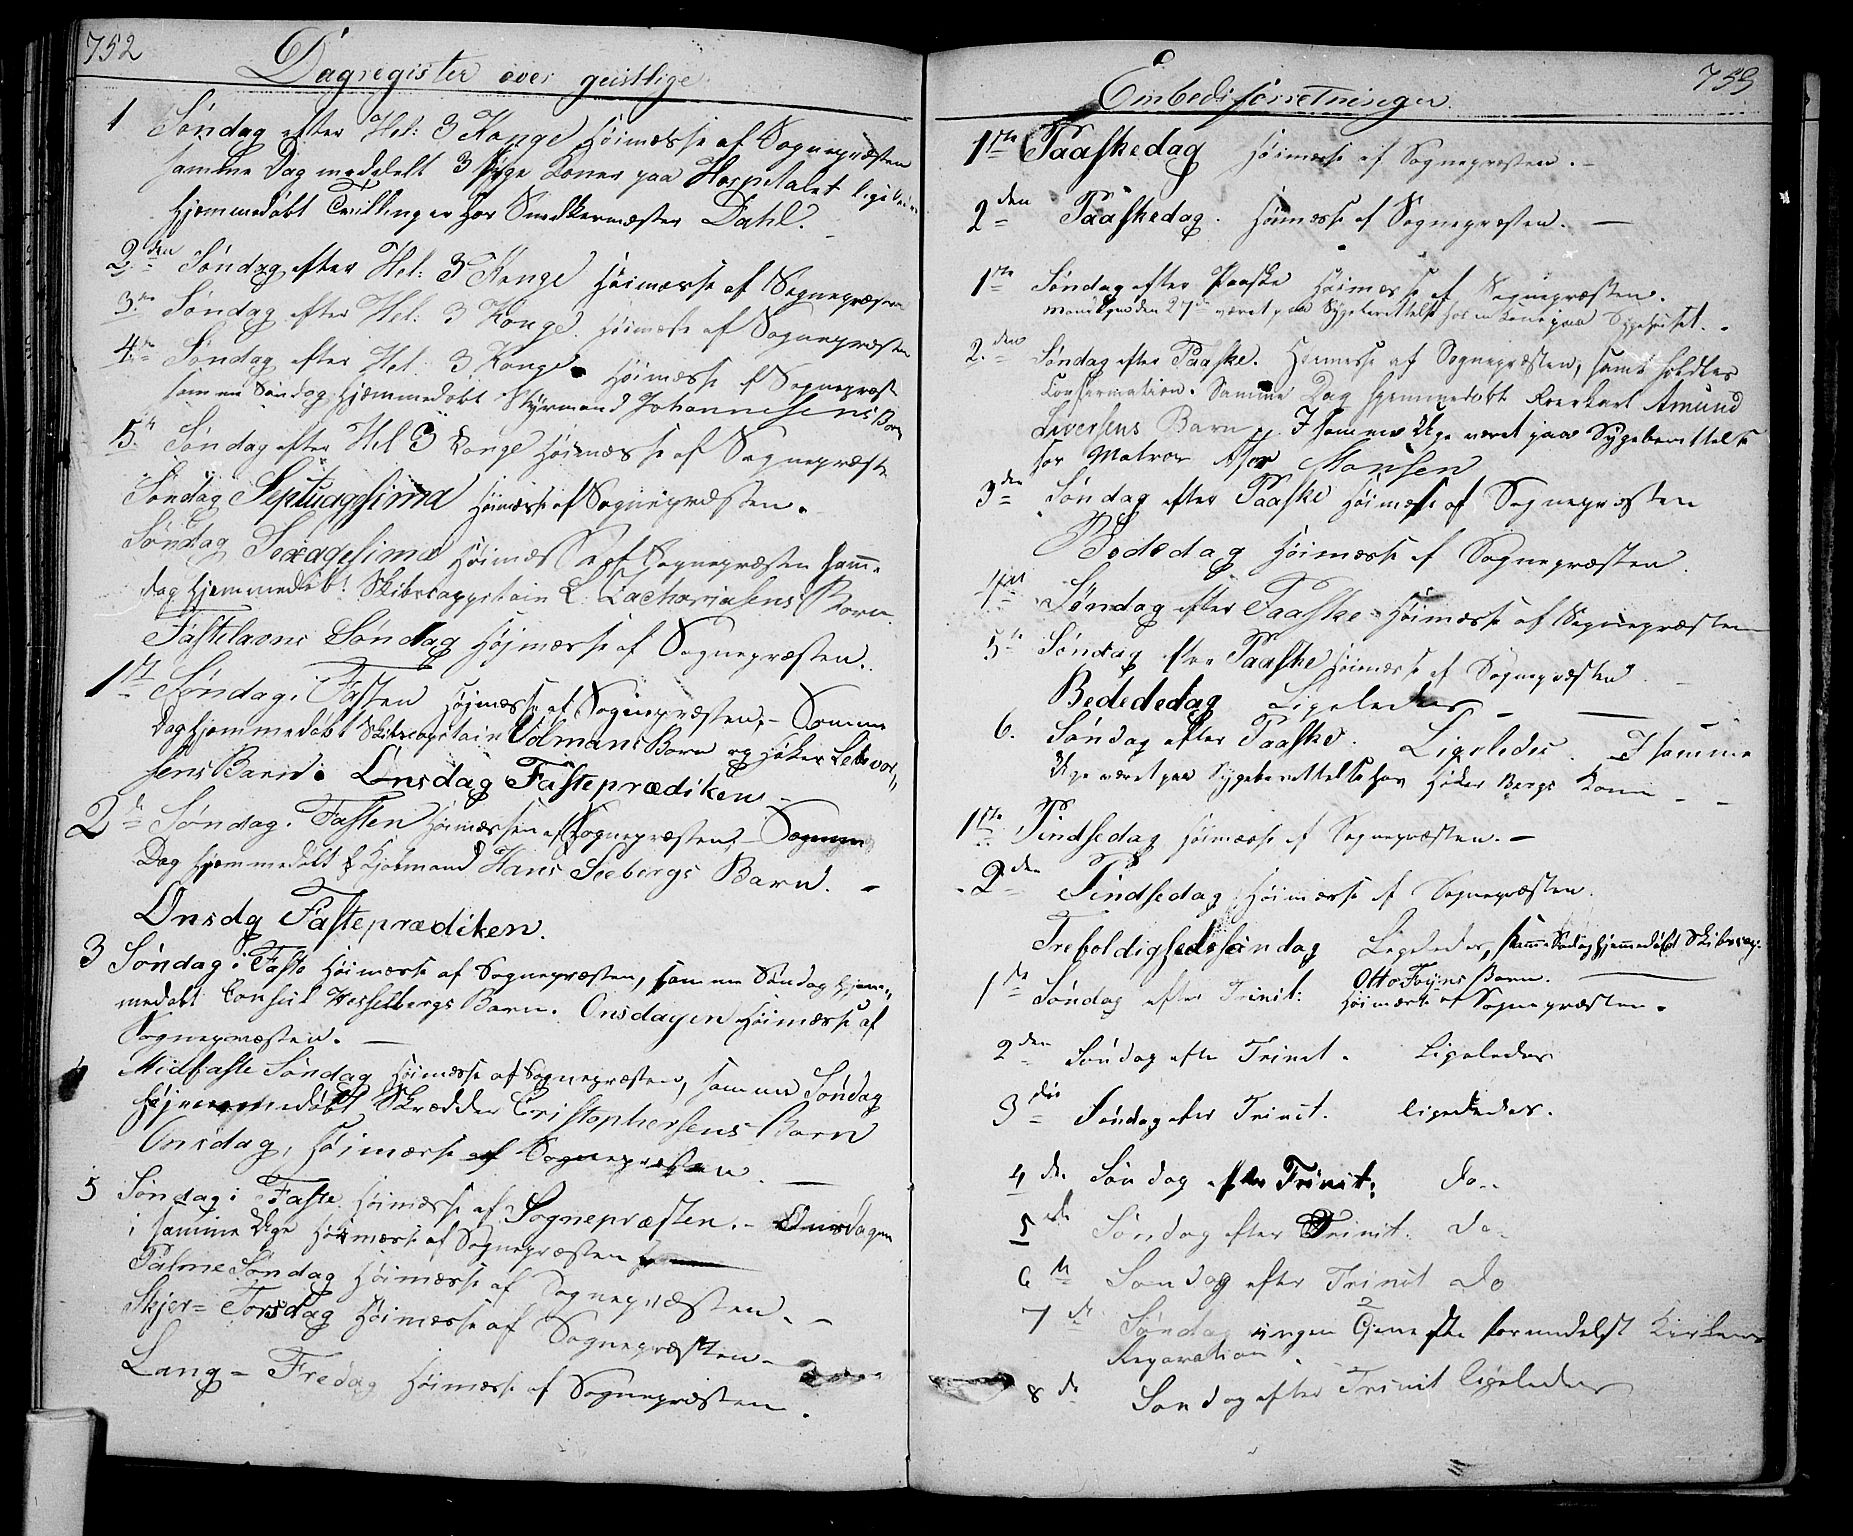 752
Dagregister over geistlige
1 Søndag efter Hel: 3 Konge Høimæsse af Sognepræsten
samme Dag meddelt 3 syge Koner paa Hospitalet
hjemmedøbt Tvillinger hos Snedkermester Dahl.
2den Søndag efter Hel: 3 Konge Høimæsse af Sognepræsten
3die Søndag efter Hel: 3 Konge. Høimæsse af Sognepræsten
4de Søndag efter Hel. 3 Konge. Høimæsse af Sognepræst
samme Søndag hjemmedøbt Styrmand Johannesens Barn
5te Søndag efter Hel 3 Konge Høimæsse af Sognepræste
Søndag Septuagesima Høimæsse af Sognepræsten.
Søndag Sexagesima Høimæsse af Sognepræsten samme
Dag hjemmedøbt Skibscapitain L. Zachariasens Barn.
Fastelavns Søndag Højmæsse af Sognepræsten.
1ste Søndag i Fasten Højmæsse af Sognepræsten, - Samme
Dag hjemmedøbt Skibscapitain Volmans Barn og Høker
sens Barn. Onsdag Fasteprædiken
2de Søndag i Fasten Høimæssen af Sognepræsten, - Samme
Dag hjemmedøbt Kjøbmand Hans Seebergs Barn. -
Onsdg Fasteprædiken.
3 Søndag i Faste Høimæsse af Sognepræsten, samme Søndag hjem-
medøbt Consul Hesselbergs Barn. Onsdagen Høimæsse af
Sognepræsten. —
4 Midfaste Søndag Høimæsse af Sognepræsten, samme Søndag
hjemmedøbt Skrædder Cristophersens Barn
Onsdag, Høimæsse af Sognepræsten. —
5 Søndag i Faste. Høimæsse af Sognepræsten. - Onsdagen
i samme Uge Høimæsse af Sognepræsten
Palme Søndag Høimæsse af Sognepræsten. -
Skjer= Torsdag Høimæsse af Sognepræsten -
Lang - Fredag Høimæsse af Sognepræsten.
753
Embedsforretninger.
1ste Paaskedag Høimæsse af Sognepræsten. -
2den Paaskedag. Høimæsse af Sognepræsten. —
1ste Søndag efter Paaske Høimæsse af Sognepræsten.
den 27de været paa Sygeberettelse hos en Kone paa Sygehuset. -
2den Søndag efter Paaske. Høimesse af Sognepræsten, samt holdtes
Confirmation. Samme Dag hjemmedøbt Amund
Liversens Barn. I samme Uge været paa Sygeberettelse
hos Matros Monsen
3die Søndag efter Paaske Høimæsse af Sognepræsten
Bededag Høimæsse af Sognepræsten.
4de Søndag efter Paaske - Høimæsse af Sognepræsten
5te Søndag efter Paaske Høimæsse af Sognepræsten
Bedededag Ligeledes - —
6. Søndag efter Paaske. Ligeledes. I samme
Uge været paa Sygeberettelse hos Høker Bergs Kone - -
1ste Pindsedag Høimæsse af Sognepræsten. -
2den Pindsedag Høimæsse af Sognepræsten.
Trefoldighedssøndag Ligeledes, samme Søndag hjemmedøbt Skibscap.
Otto Foyns Barn. —
1ste Søndag efter Trinit: Høimæsse af Sognepræsten.
2den Søndag efter Trinit. Ligeledes
3die Søndag efter Trinit. ligeledes.
4de Søndag efter Trinit: do..
5te Søndag efter Trinit. do.
6te Søndag efter Trinit do
7de Søndag ingen Tjeneste formedelst Kirkens
Reparation.
8de Søndag efter Trinit ligeledes